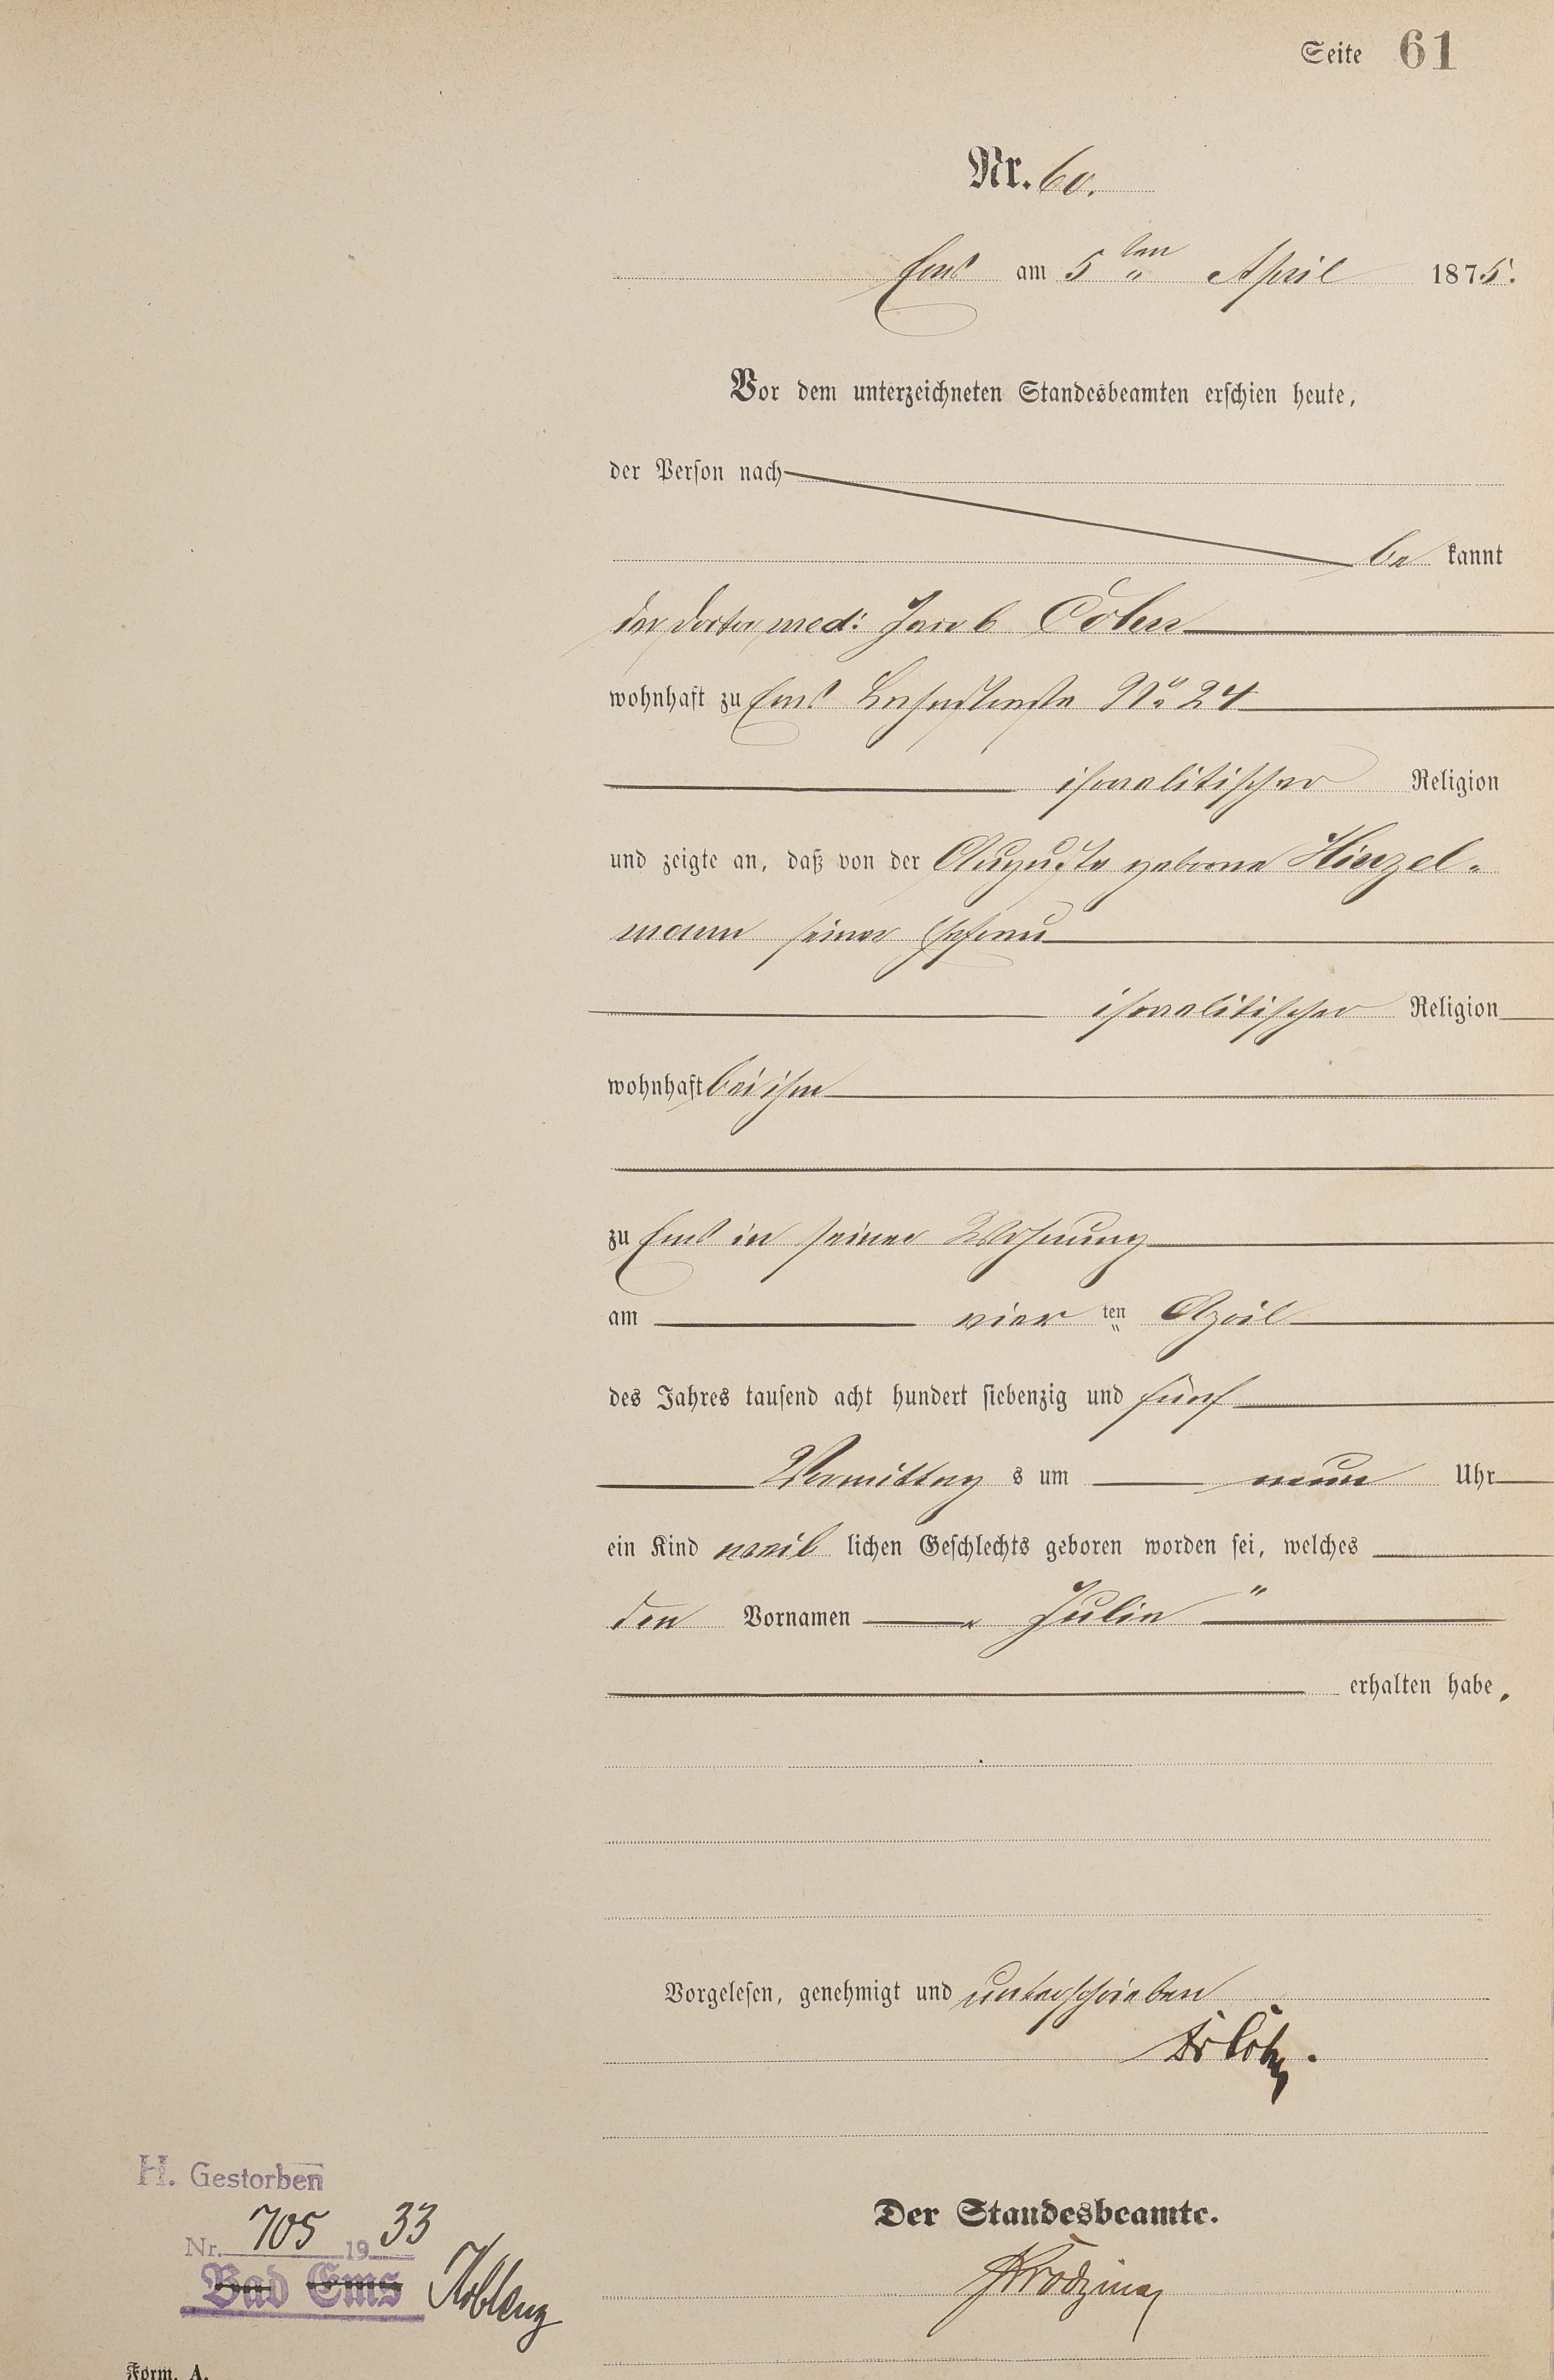 Seite 61
Nr. 60.
Ems am 5ten April 1875.
Vor dem unterzeichneten Standesbeamten erschien heute,
der Person nach
be kannt
der Doctor med: Jacob Cohn
wohnhaft zu Ems No 24
israelitischer Religion
und zeigte an, daß von der Auguste geborne Hinzel-
mann seiner Ehefrau
israelitischer Religion
wohnhaft bei ihm
zu Ems in seiner Wohnung
am vier ten April
des Jahres tausend acht hundert siebenzig und fünf
Vormittag s um neun Uhr
ein Kind weib lichen Geschlechts geboren worden sei, welches
den Vornamen „ Julie "
erhalten habe.
Vorgelesen, genehmigt und unterschrieben
Dr Cohn.
Der Standesbeamte.
H. Gestorben
Nr. 705 1933
Bad Ems Koblenz
Form. A.